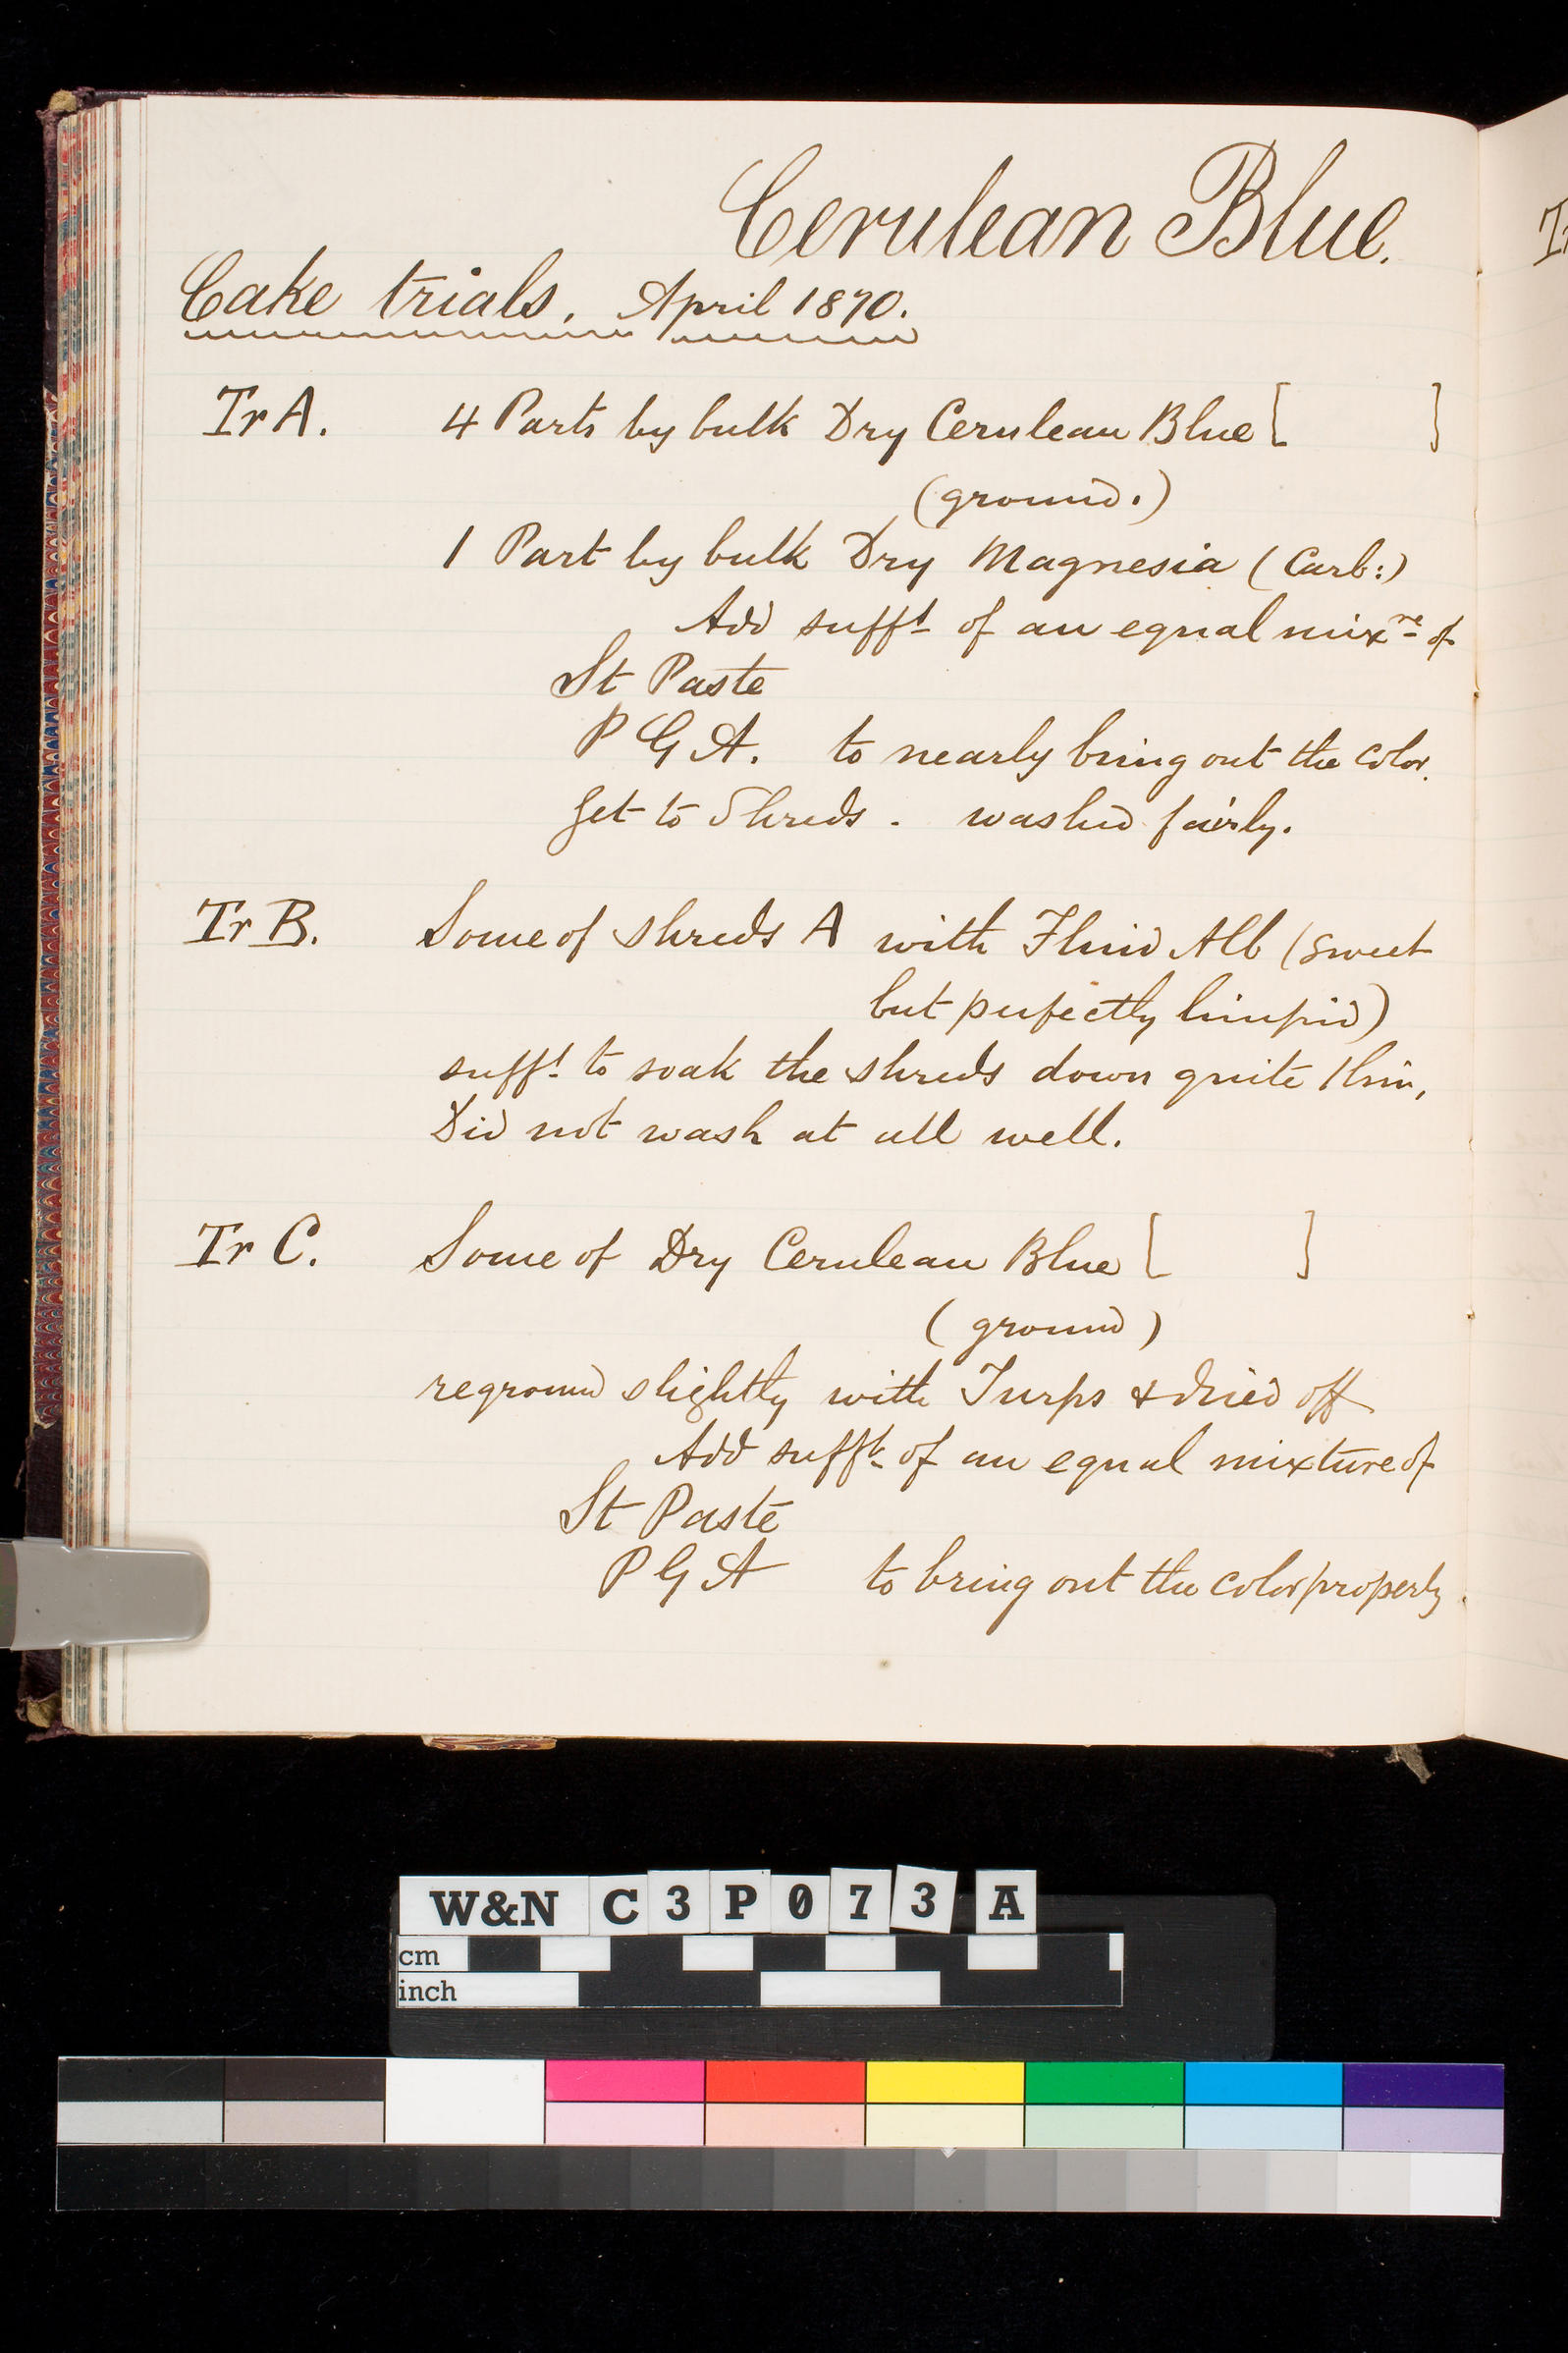 Cerulean Blue.
Cake trials. April 1870.
Tr A. 4 Parts by bulk Dry Cerulean Blue [ ]
(ground.)
1 Part by bulk Dry Magnesia (Carb:)
Add sufft of an equal mixre of
St Paste
P G A. to nearly bring out the color.
Get to Shreds. washed fairly.
Tr B. Some of shreds A with Fluid Alb (sweet
but perfectly limpid)
sufft to soak the shreds down quite thin,
Did not wash at all well.
Tr C. Some of Dry Cerulean Blue [ ]
(ground)
reground slightly with Turps & dried off
Add sufft of an equal mixture of
St Paste
P G A to bring out the color properly.
W&N C3P073 A
cm
inch